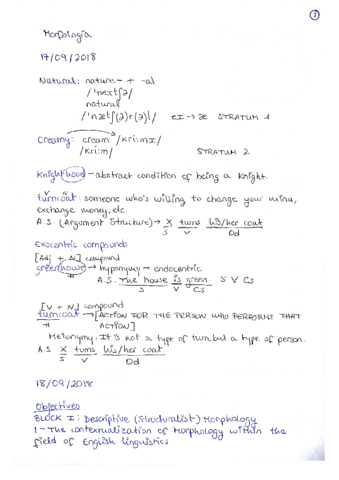 1
Morfología
17/09/2018
Natural: nature - + -al
/'neɪtʃə/
natural
/'nætʃ(ə)r(ə)l/ eɪ → æ STRATUM 1
Creamy: cream /kri:mɪ/
/kri:m/ STRATUM 2
Knighthood - abstract condition of being a knight.
V N
turncoat: someone who's willing to change your mind,
exchange money, etc.
A.S. (Argument Structure) → X turns his/her coat
S V Od
Exocentric compounds
[Adj + N] compound
greenhouse → hyponymy → endocentric
A.S. The house is green. S V Cs
S V Cs
[V + N] compound
turncoat → [ACTION FOR THE PERSON WHO PERFORMS THAT
ACTION]
Metonymy. It is not a type of turn but a type of person.
A.S. X turns his/her coat.
S V Od
18/09/2018
Objectives
BLOCK I: Descriptive (Structuralist) Morphology
1 - The contextualization of Morphology within the
field of English linguistics